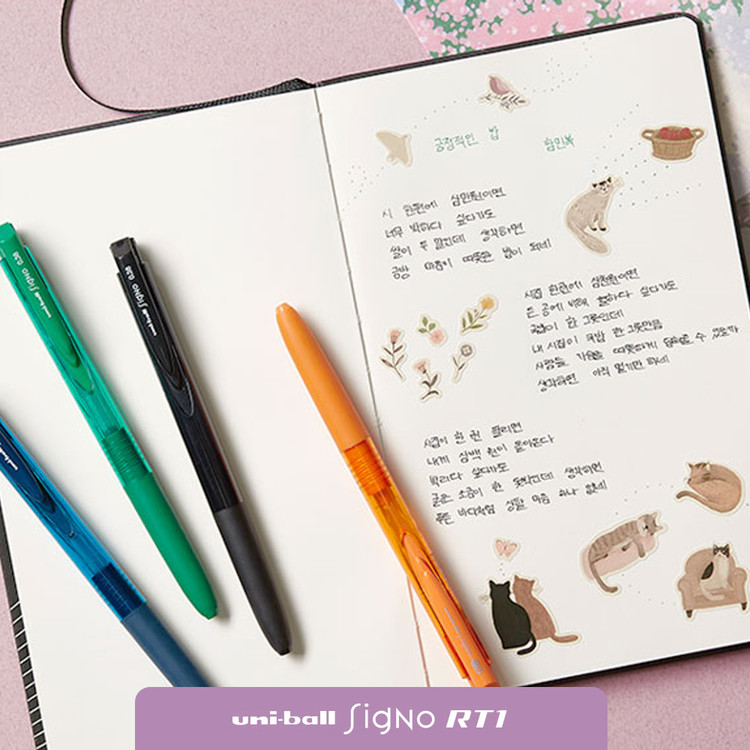 긍정적인 밥 함민복
시 한편에 삼만원이면
너무 박하다 싶다가도
쌀이 두 말인데 생각하면
금방 마음이 따뜻한 밥이 되네
시집 한권에 삼천원이면
든 공에 비해 헐하다 싶다가도
국밥이 한 그릇인데
내 시집이 국밥 한 그릇만큼
사람들 가슴을 따뜻하게 덥혀줄 수 있을까
생각하면 아직 멀기만 하네
시집이 한 권 팔리면
내게 삼백 원이 돌아온다
박리다 싶다가도
굵은 소금이 한 됫박인데 생각하면
푸른 바다처럼 상할 마음 하나 없네
uni-ball SIGNO 0.38
uni-ball SIGNO 0.38
uni-ball
uni-ball SIGNO RT1